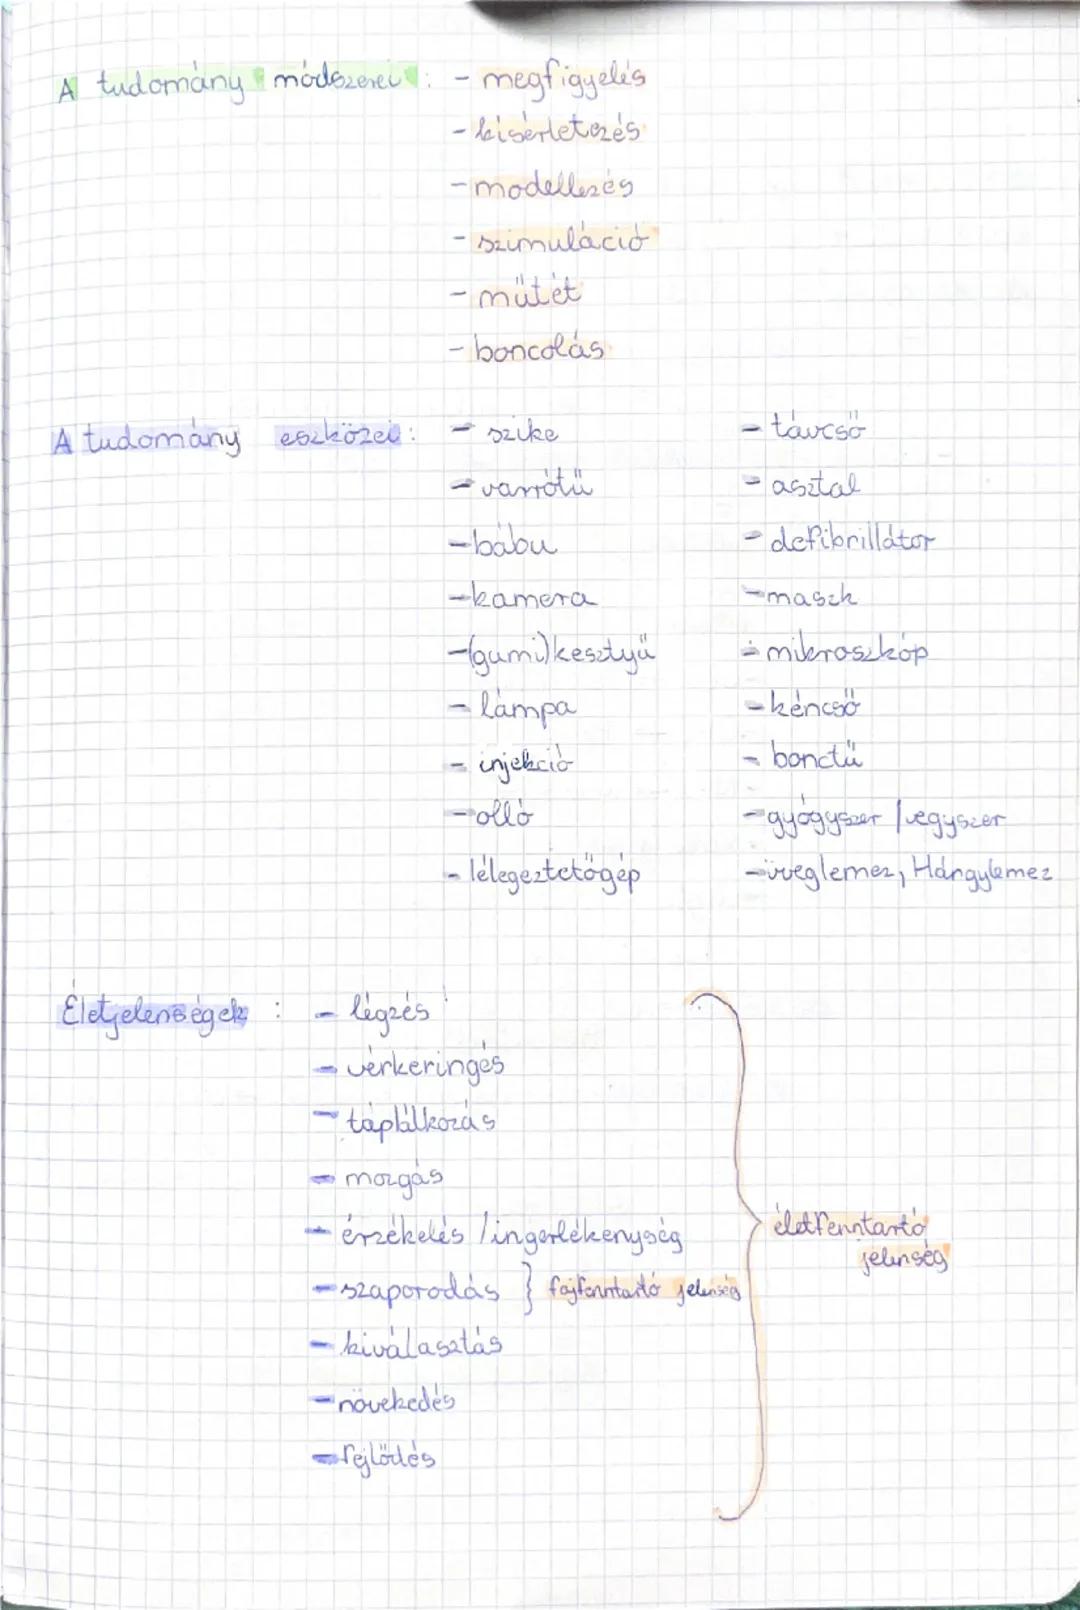 A tudomány módszerei : - megfigyelés
- kisérletezés
- modellezés
- szimuláció
- műtét
- boncolás
A tudomány eszközei : - szike
- varrótű
- bábu
- kamera
- (gumi)kesztyű
- lámpa
- injekció
- olló
- lélegeztetőgép
- távcső
- asztal
- defibrillátor
- maszk
- mikroszkóp
- kémcső
- bonctű
- gyógyszer / vegyszer
- üveglemez,
Életjelenségek : - légzés
- vérkeringés
- táplálkozás
- mozgás
- érzékelés / ingerlékenység
- szaporodás } fajfenntartó jelenség
- kiválasztás
- növekedés
- fejlődés
életfenntartó
jelenség